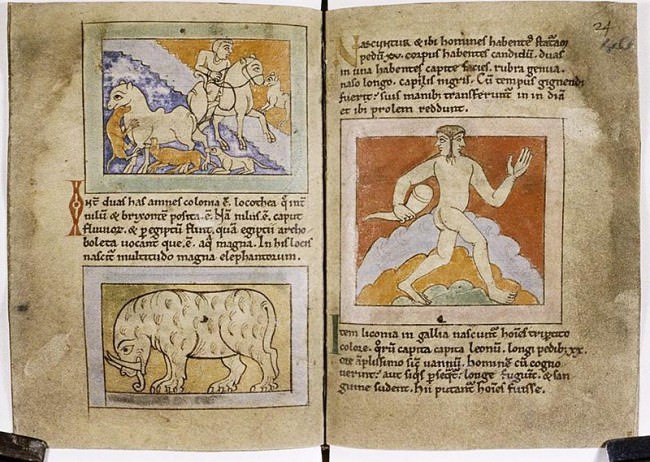 Int duas has amnes colonia ē. locothea q̄ int
nilū & brixontē posita ē. Nā nilis ē. caput
fluuior. & p egiptū fluit, quā egiptii archo
boleta uocant que. ē. aq magna. In his locis
nascit multitudo magna elephantorum.
24
Nascuntur & ibi homines habentes statam
pedū. xv. corpus habentes candidū, duas
in una habentes capite facies, rubra genua.
naso longo, capillis nigris. Cū tempus gignendi
fuerit; suis manibus transferunt in in diā
et ibi prolem reddunt.
Item liconia in gallia nascunt hoīes tripcito
colore. qrū capita capita leonū, longi pedib; xx.
ore aplissimo sic uannū. hominē cū cogno
uerint; aut siqs pseqt; longe fugiūt, & san
guine sudent. Hii putant hoīes fuisse.